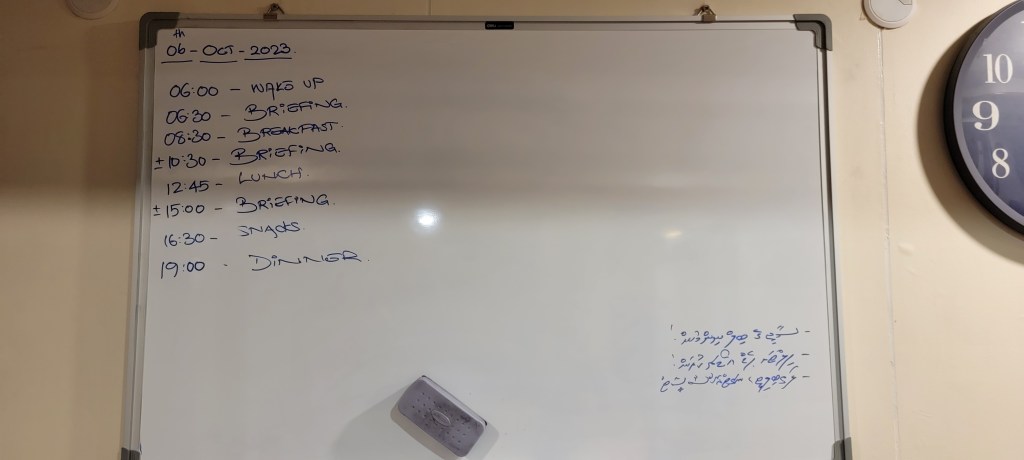 06th - OCT - 2023.
06:00 - WAKE UP
06:30 - BRIEFING.
08:30 - BREAKFAST.
±10:30 - BRIEFING.
12:45 - LUNCH.
±15:00 - BRIEFING.
16:30 - SNACKS.
19:00 - DINNER.
10
9
8